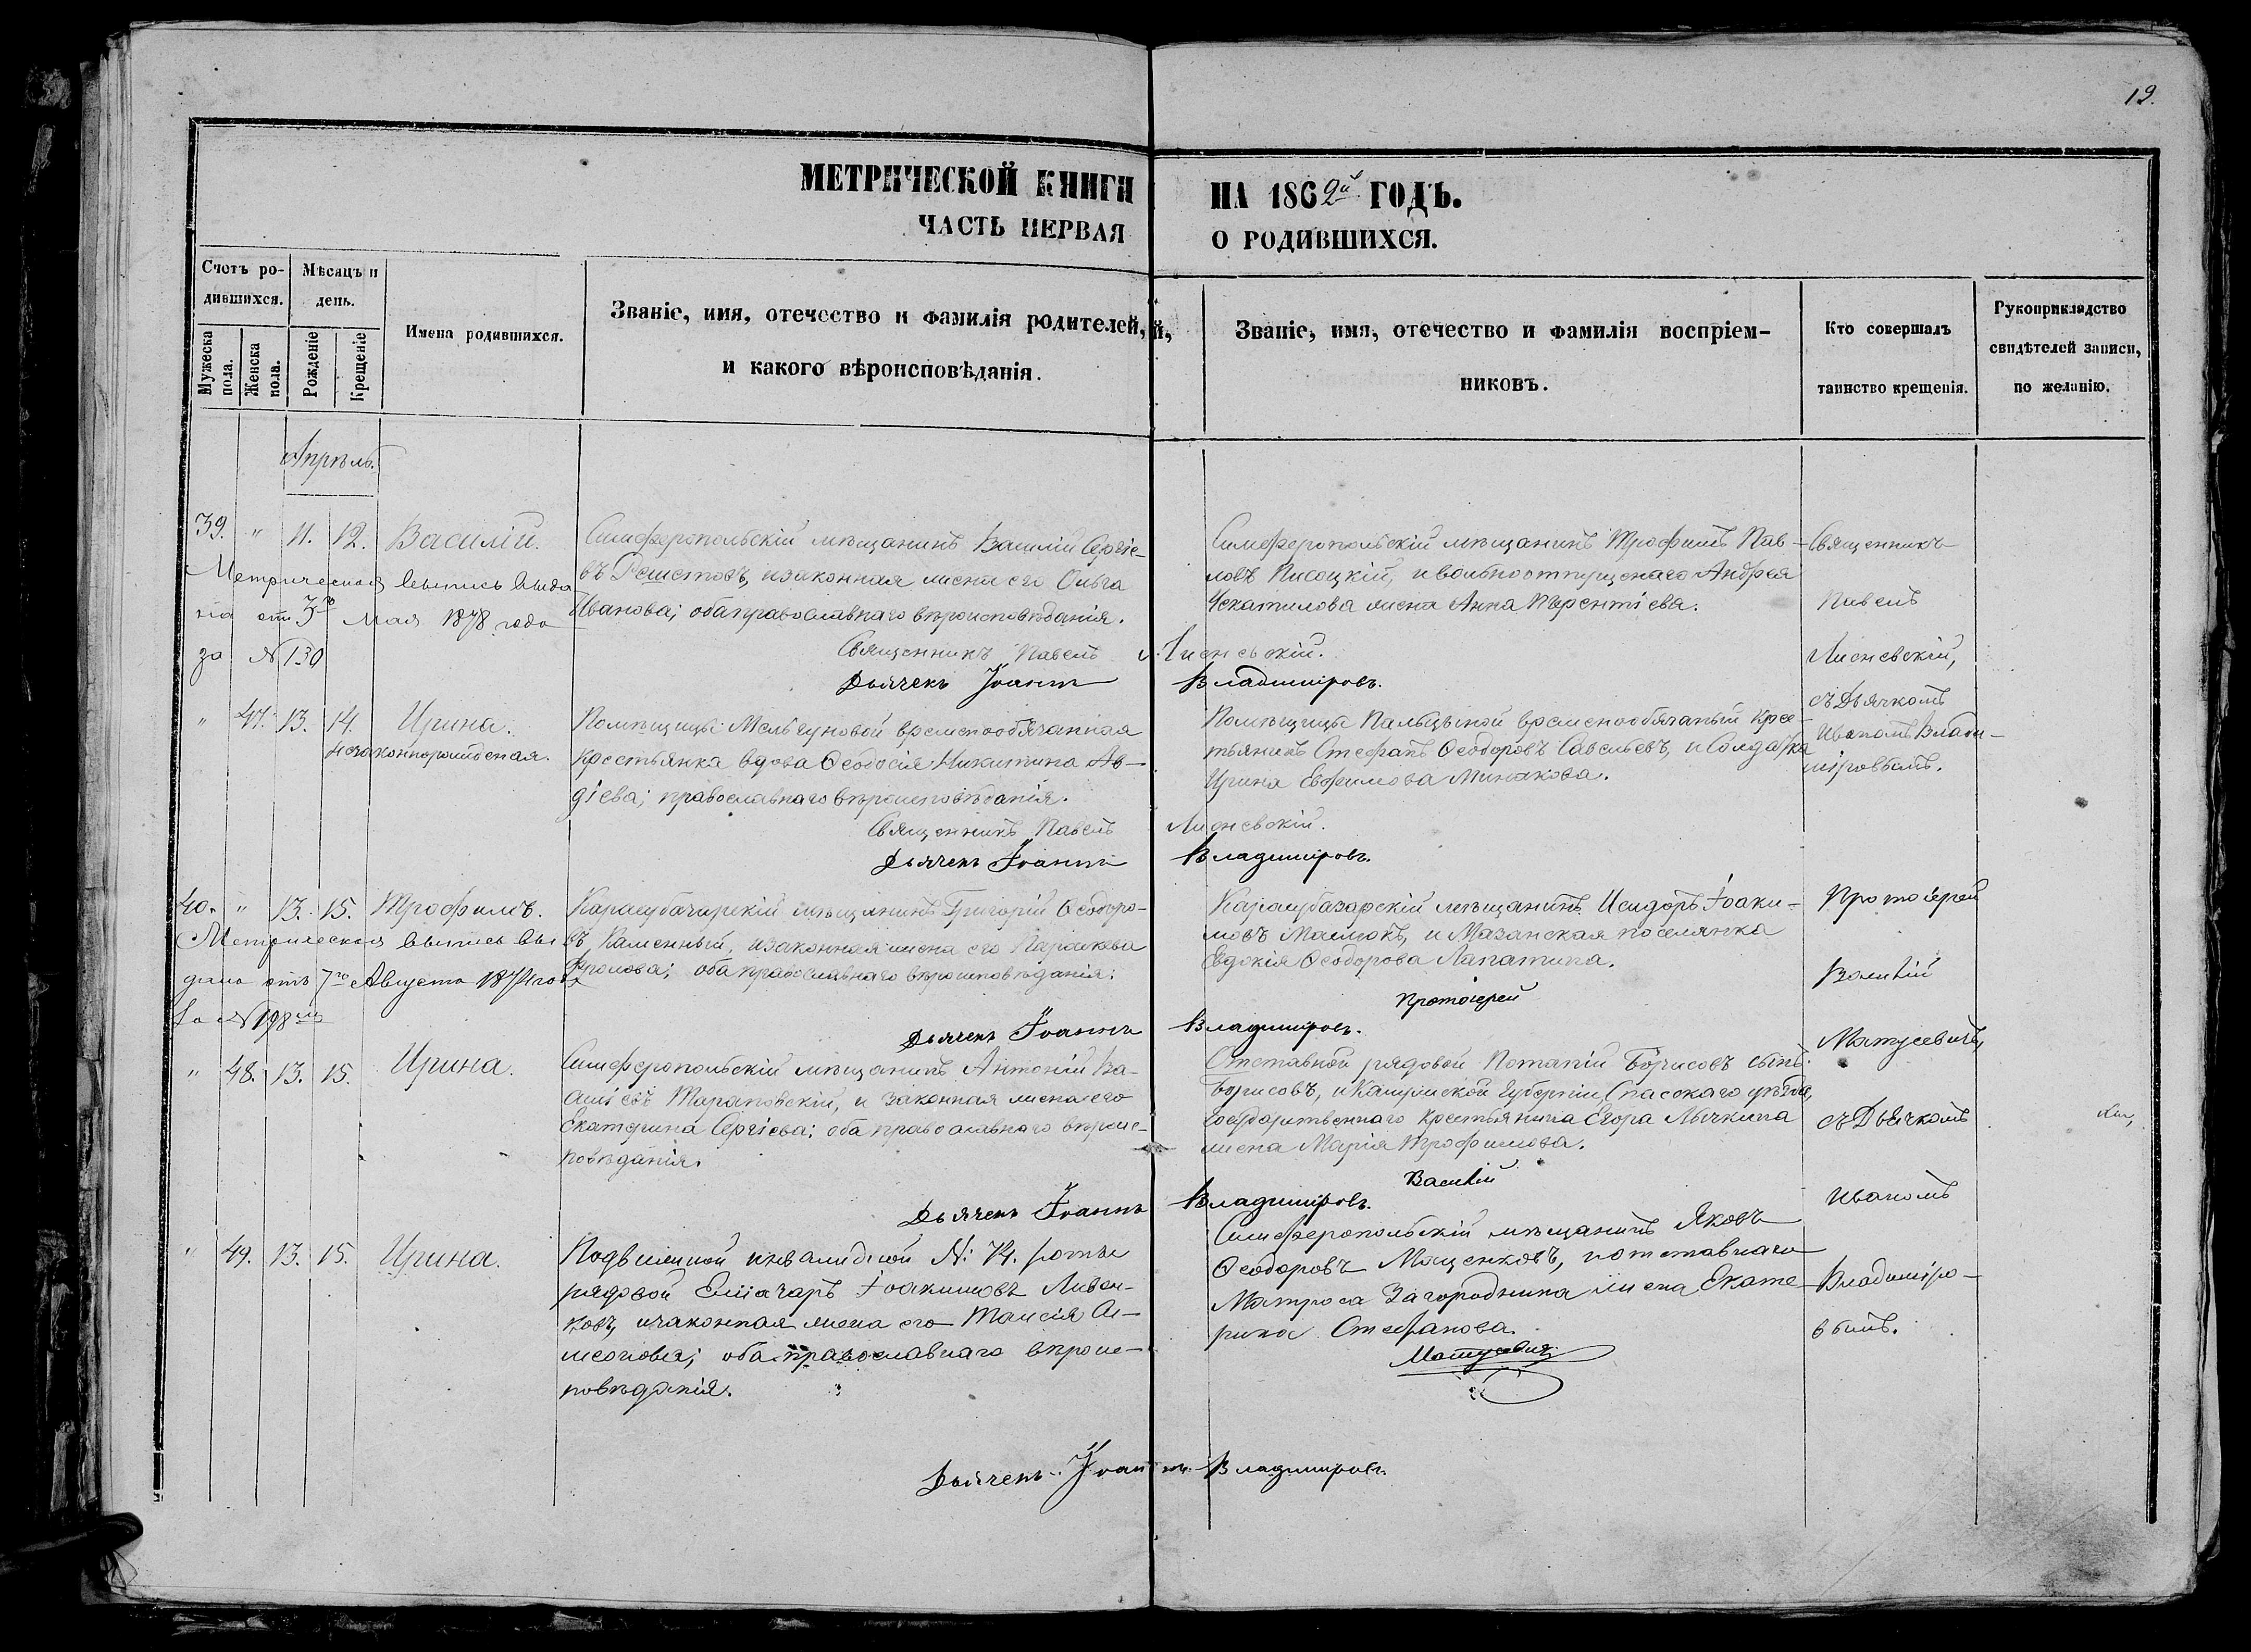 19.
МЕТРИЧЕСКОЙ КНИГИ НА 1862й ГОДЪ.
ЧАСТЬ ПЕРВАЯ О РОДИВШИХСЯ.
Счетъ ро-
дившихся.
Мужеска пола.
Женска пола.
Мѣсяцъ и
день.
Рожденіе
Крещеніе
Имена родившихся.
Званіе, имя, отечество и фамилія родителей,
и какого вѣроисповѣданія.
Званіе, имя, отечество и фамилія воспріем-
никовъ.
Кто совершалъ
таинство крещенія.
Рукоприкладство
свидѣтелей записи,
по желанію.
Апрѣль.
39. " 11. 12. Василій.
Метрическая выпись выда
на отъ 3го Мая 1878 года
за № 130
Симферопольскій мѣщанинъ Василій Сергіе-
въ Решетовъ, изаконная жена его Ольга
Иванова; оба православнаго вѣроисповѣданія.
Симферопольскій мѣщанинъ Трофимъ Пав-
ловъ Писоцкій, и вольноотпущенаго Андрея
Чекатилова жена Анна Терентіева.
Священникъ Павелъ Лисневскій.
Дьячекъ Іоаннъ Владиміровъ.
Священникъ
Павелъ
Лисневскій,
съ Дьячкомъ
Иваномъ Влади-
міровымъ.
" 47. 13. 14. Ирина.
незаконнорожденая.
Помѣщицы Мельгуновой временнообязанная
крестьянка вдова Ѳеодосія Никитина Ав-
діева; православнаго вѣроисповѣданія.
Помѣщицы Пальцыной временнообязаный крес-
тьянинъ Стефанъ Ѳеодоровъ Савельевъ, и Солдатка
Ирина Евфимова Минакова.
Священникъ Павелъ Лисневскій.
Дьячекъ Іоаннъ Владиміровъ.
40. " 13. 15. Трофимъ.
Метрическая выпись вы
дана отъ 7го Августа 1874 год
за № 198
Карасубазарскій мѣщанинъ Григорій Ѳеодоро-
въ, Каменный, изаконная жена его Параскева
Фролова; оба православнаго вѣроисповѣданія.
Карасубазарскій мѣщанинъ Исидоръ Іоаки-
мовъ, и Мазанская поселянка
Евдокія Ѳеодорова Лапатина.
Протоіерей
Дьячекъ Іоаннъ Владиміровъ.
Протоіерей
Василій
Матусевичъ,
съ Дьячкомъ
Иваномъ
Владиміро-
вымъ.
" 48. 13. 15. Ирина.
Симферопольскій мѣщанинъ Антоній Ва-
силіевъ Тарановскій, и законная жена его
Екатерина Сергіева; оба православнаго вѣроис-
повѣданія.
Отставной рядовой Потапій Борисовъ сынъ
Борисовъ, и Губерніи, Спаского уѣзда,
Государственнаго крестьянина Егора Лычкина
жена Марія Трофимова.
Василій
Дьячекъ Іоаннъ Владиміровъ.
" 49. 13. 15. Ирина.
Подвижной инвалидной №: 74. роты
рядовой Іоакимовъ Ливен-
ковъ, изаконная жена его Таисія Си-
меонова; оба православнаго вѣроис-
повѣданія.
Симферопольскій мѣщанинъ Яковъ
Ѳеодоровъ Мащенковъ, и отставнаго
Матроса Загороднина жена Екате-
рина Стефанова.
Матусевичъ
Дьячекъ Іоаннъ Владиміровъ.